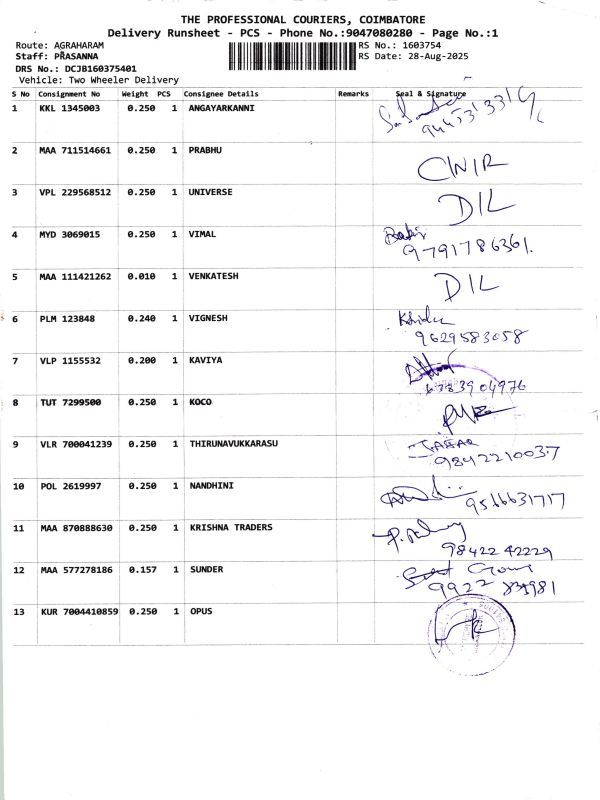 THE PROFESSIONAL COURIERS, COIMBATORE
Delivery Runsheet - PCS - Phone No.:9047080280 - Page No.:1
Route: AGRAHARAM RS No.: 1603754
Staff: PRASANNA RS Date: 28-Aug-2025
DRS No.: DCJB160375401
Vehicle: Two Wheeler Delivery
S No Consignment No Weight PCS Consignee Details Remarks Seal & Signature
1 KKL 1345003 0.250 1 ANGAYARKANNI
2 MAA 711514661 0.250 1 PRABHU
3 VPL 229568512 0.250 1 UNIVERSE DIL
4 MYD 3069015 0.250 1 VIMAL
9791786361.
5 MAA 111421262 0.010 1 VENKATESH DIL
6 PLM 123848 0.240 1 VIGNESH
9629583058
7 VLP 1155532 0.200 1 KAVIYA
8 TUT 7299500 0.250 1 KOCO
9 VLR 700041239 0.250 1 THIRUNAVUKKARASU
9842210037
10 POL 2619997 0.250 1 NANDHINI 9566631717
11 MAA 870888630 0.250 1 KRISHNA TRADERS
98422 42229
12 MAA 577278186 0.157 1 SUNDER
13 KUR 7004410859 0.250 1 OPUS